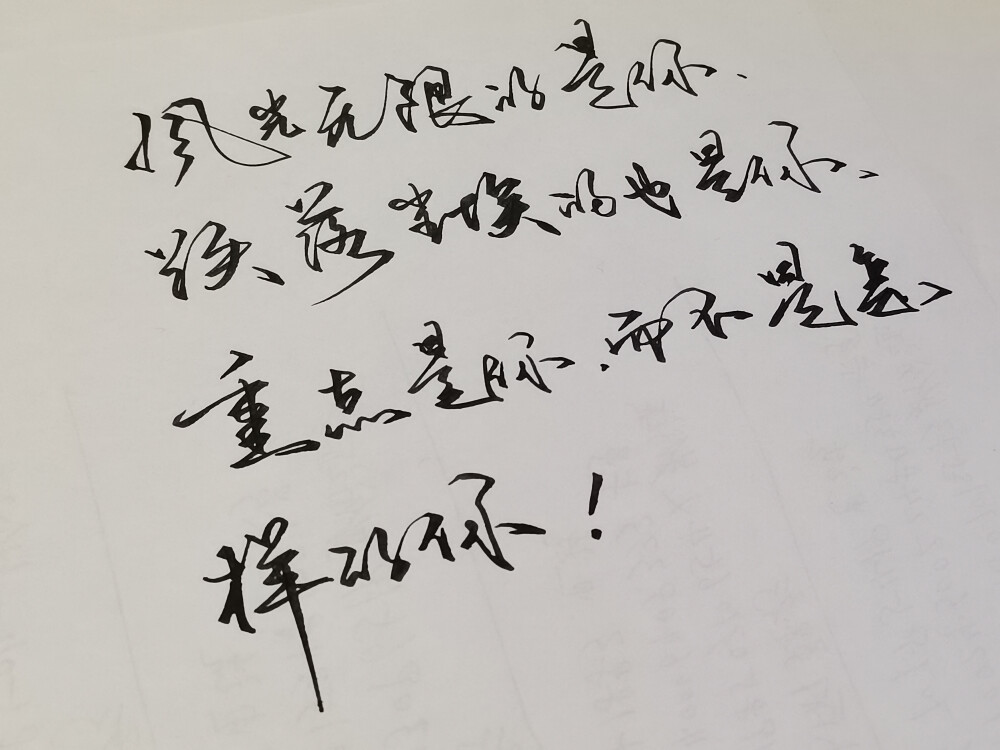 风光无限的是你、
跌落尘埃的也是你、
重点是你，而不是怎
样的你！